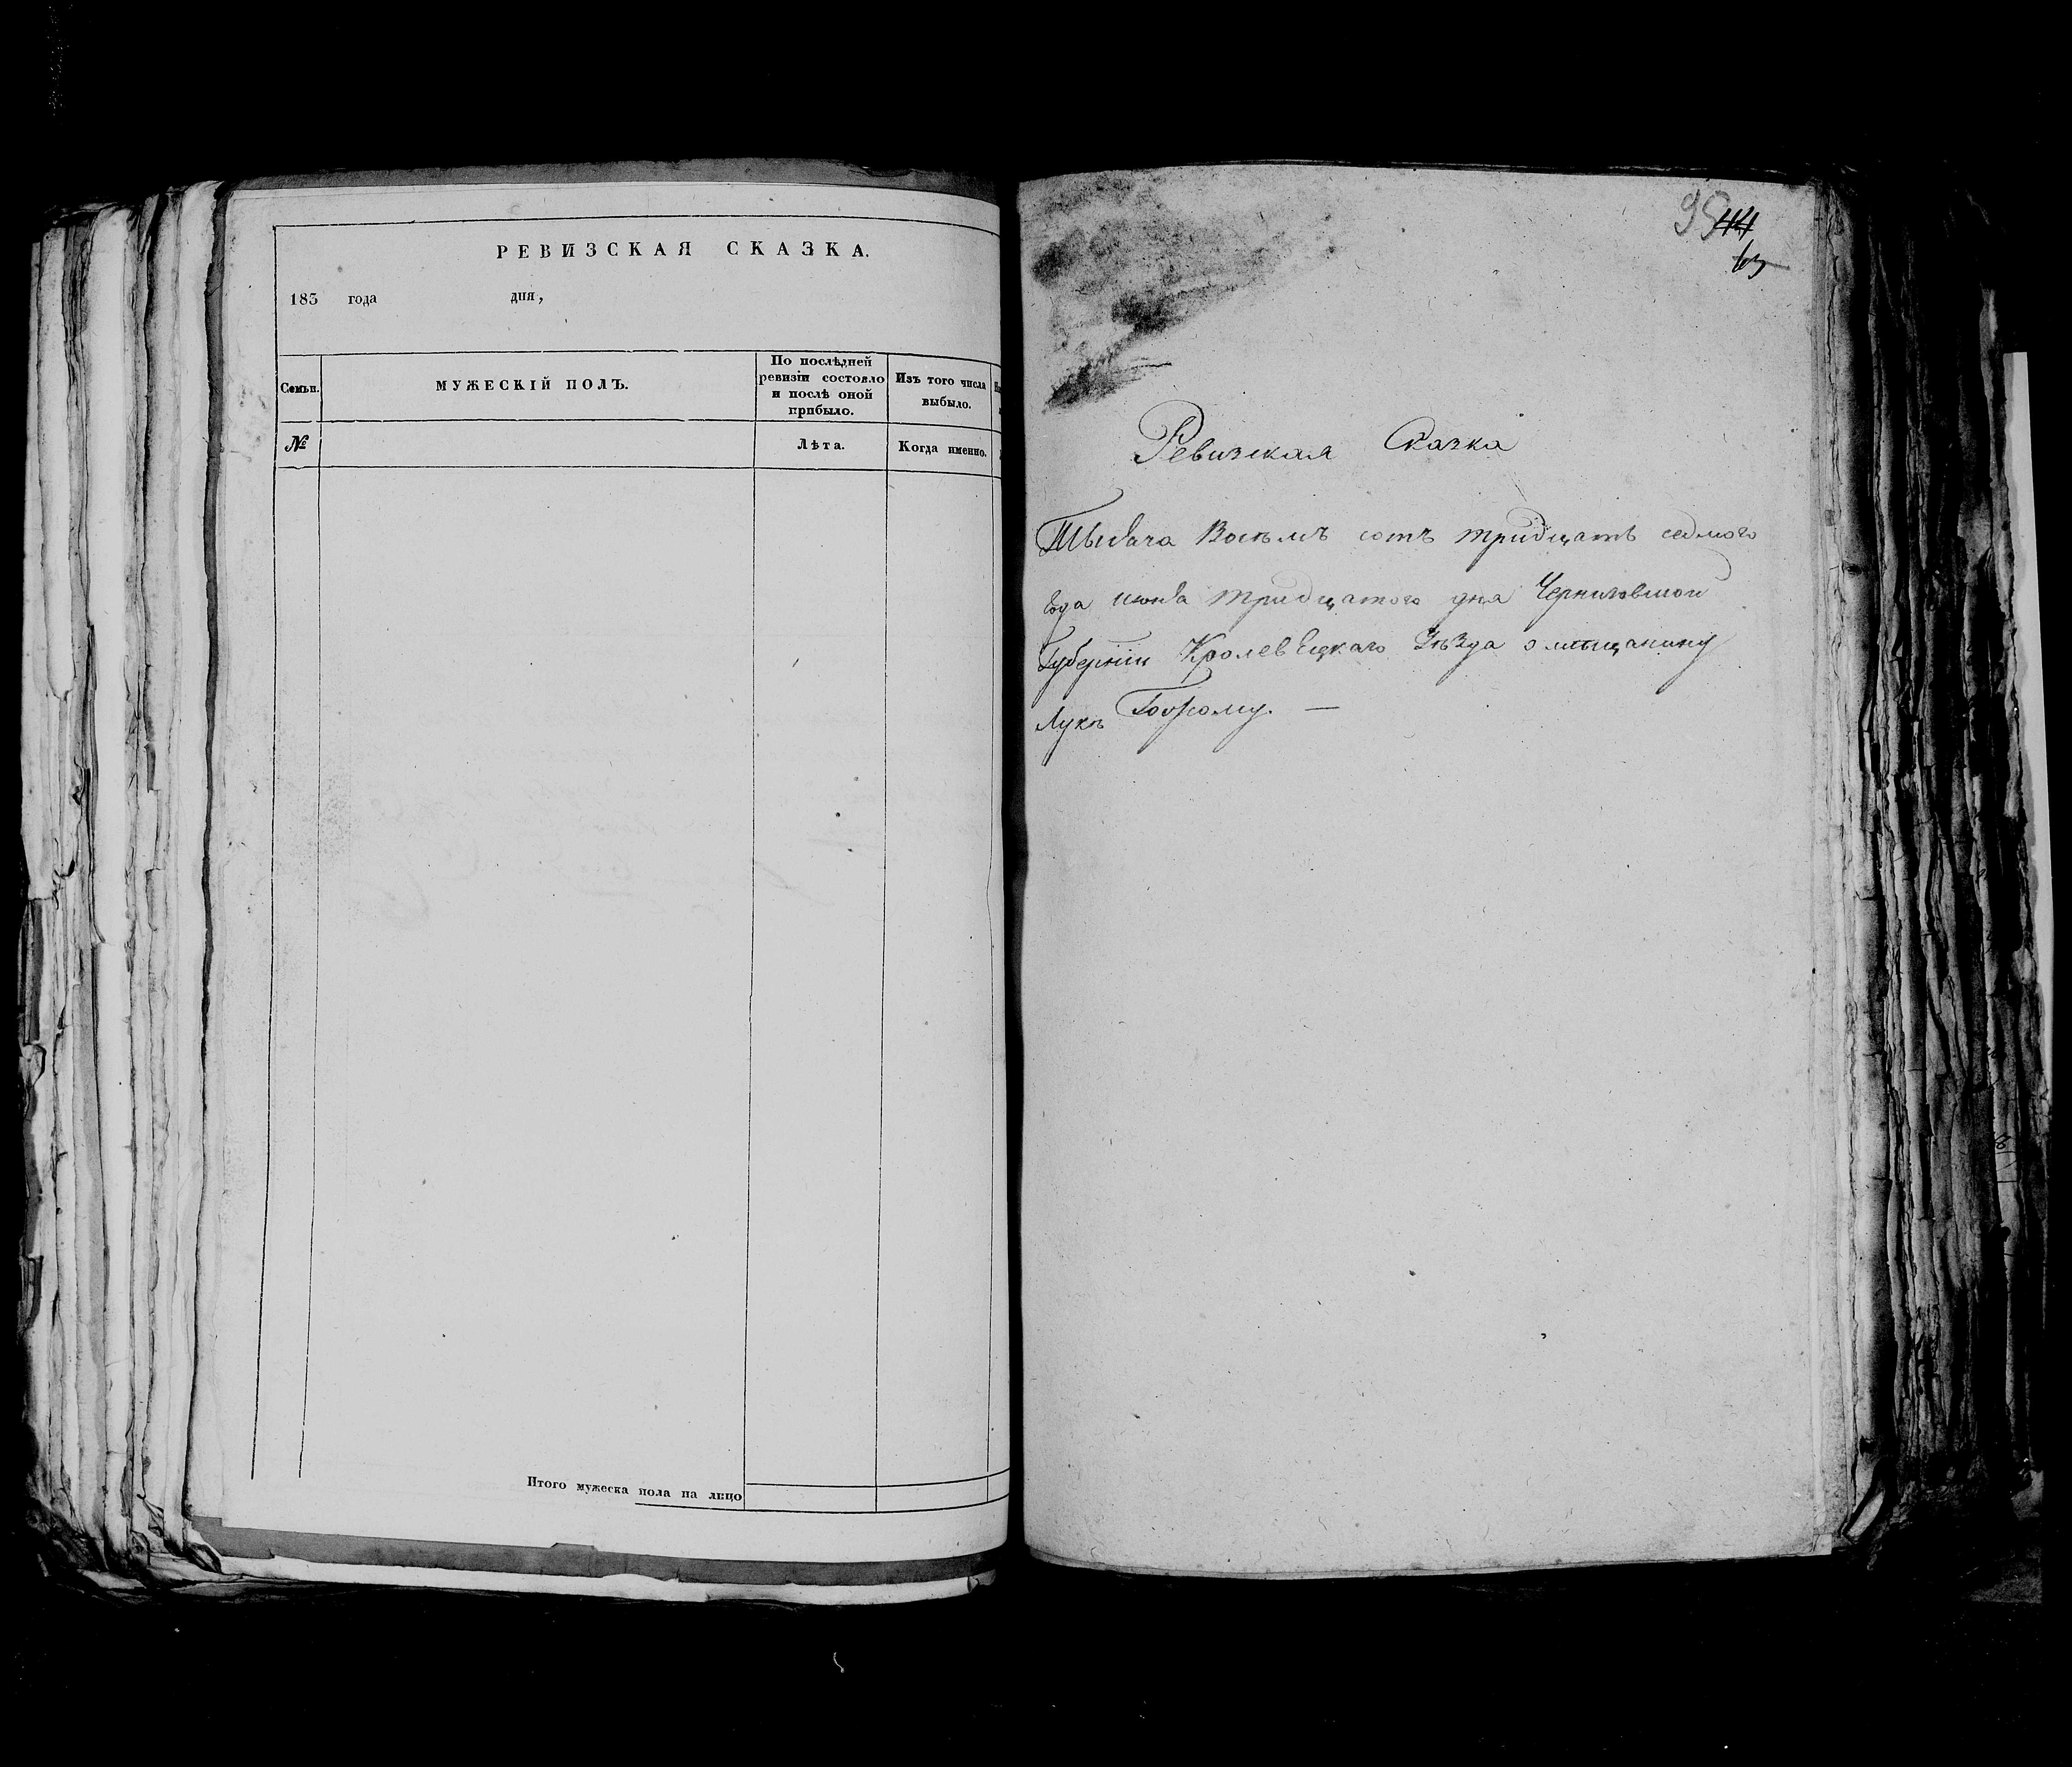 РЕВИЗСКАЯ СКАЗКА.
183 года дня,
Семьи.
МУЖЕСКІЙ ПОЛЪ.
По послѣдней
ревизіи состояло
и послѣ оной
прибыло.
Изъ того числа
выбыло.
№
Лѣта.
Когда именно.
Итого мужеска пола на лицо
95 44
63
Ревизская Сказка
Тысяча Восѣмъ сотъ тридцать седмого
года июня тридцатого дня Черниговской
Губерніи Кролевецкаго Уѣзда о мѣщанину
Лукѣ